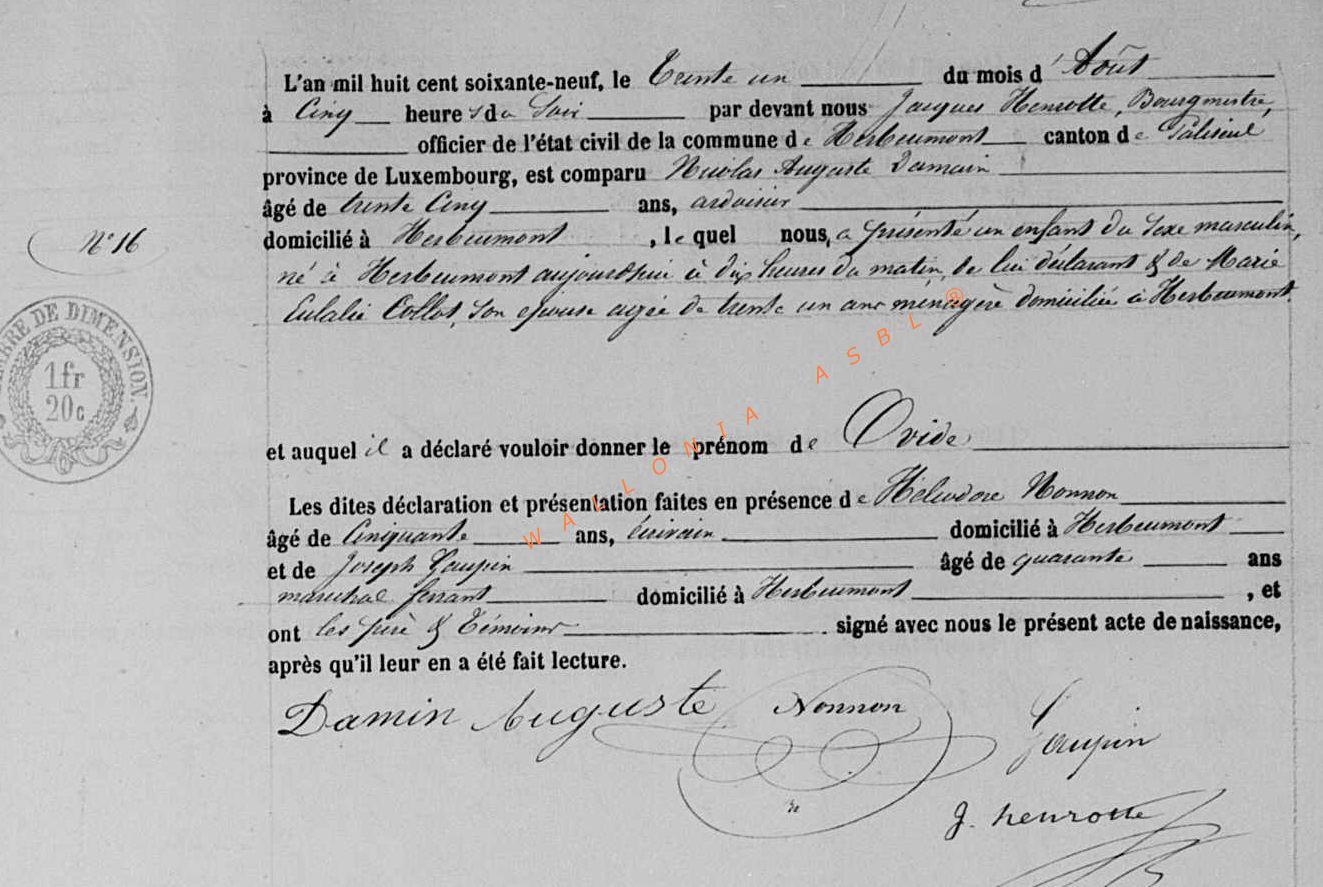 L'an mil huit cent soixante-neuf, le Trente un du mois d'Août
à Cinq heures du Soir par devant nous Jacques Henrotte, Bourgmestre,
officier de l'état civil de la commune de Herbeumont canton de Paliseul
province de Luxembourg, est comparu Nicolas Auguste Damain
âgé de trente Cinq ans, ardoisier
domicilié à Herbeumont, lequel nous, a présenté un enfant du sexe masculin,
N° 16
né à Herbeumont aujourd'hui à dix heures du matin, de lui déclarant & de Marie
Eulalie Collot, son epouse agée de trente un ans ménagère domiciliée à Herbeumont.
TIMBRE DE DIMENSION.
1fr
20c
et auquel il a déclaré vouloir donner le prénom de Ovide
Les dites déclaration et présentation faites en présence de Héliodore Nonnon
âgé de Cinquante ans, écrivain domicilié à Herbeumont
et de Joseph Gaupin âgé de quarante ans
marechal ferrant domicilié à Herbeumont, et
ont les père & Témoins signé avec nous le présent acte de naissance,
après qu'il leur en a été fait lecture.
Damin Auguste Nonnon Gaupin
J. henrotte
WALLONIA ASBL ®